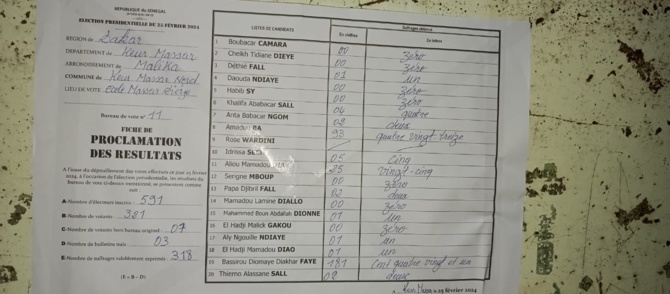 REPUBLIQUE DU SENEGAL
ELECTION PRESIDENTIELLE DU 25 FÉVRIER 2024
REGION de Dakar
DEPARTEMENT de Keur Massar
ARRONDISSEMENT de Malika
COMMUNE de Keur Massar Nord
LIEU DE VOTE Ecole Massar
Bureau de vote n° 11
FICHE DE
PROCLAMATION
DES RESULTATS
A l'issue du dépouillement des votes effectués ce jour 25 février
2024, à l'occasion de l'élection présidentielle, les résultats du
bureau de vote ci-dessus mentionné, se présentent comme
suit :
A-Nombre d'électeurs inscrits 591
B-Nombre de votants 321
C-Nombre de votants hors bureau originel 07
D-Nombre de bulletins nuls 03
E-Nombre de suffrages valablement exprimés 318
(E = B - D)
LISTES DE CANDIDATS Suffrages obtenus
En chiffres En lettres
1 Boubacar CAMARA 00 zéro
2 Cheikh Tidiane DIEYE 00 zéro
3 Déthié FALL 01 un
4 Daouda NDIAYE 00 zéro
5 Habib SY 00 zéro
6 Khalifa Ababacar SALL 04 quatre
7 Anta Babacar NGOM 02 deux
8 Amadou BA 93 quatre vingt treize
9 Rose WARDINI
10 Idrissa 05 Cinq
11 Aliou Mamadou 25 vingt-cinq
12 Serigne MBOUP 00 zéro
13 Papa Djibril FALL 02 deux
14 Mamadou Lamine DIALLO 00 zéro
15 Mahammed Boun Abdallah DIONNE 01 un
16 El Hadji Malick GAKOU 00 zéro
17 Aly Ngouille NDIAYE 01 un
18 El Hadji Mamadou DIAO 01 un
19 Bassirou Diomaye Diakhar FAYE 181 Cent quatre vingt et un
20 Thierno Alassane SALL 02 deux
25 février 2024